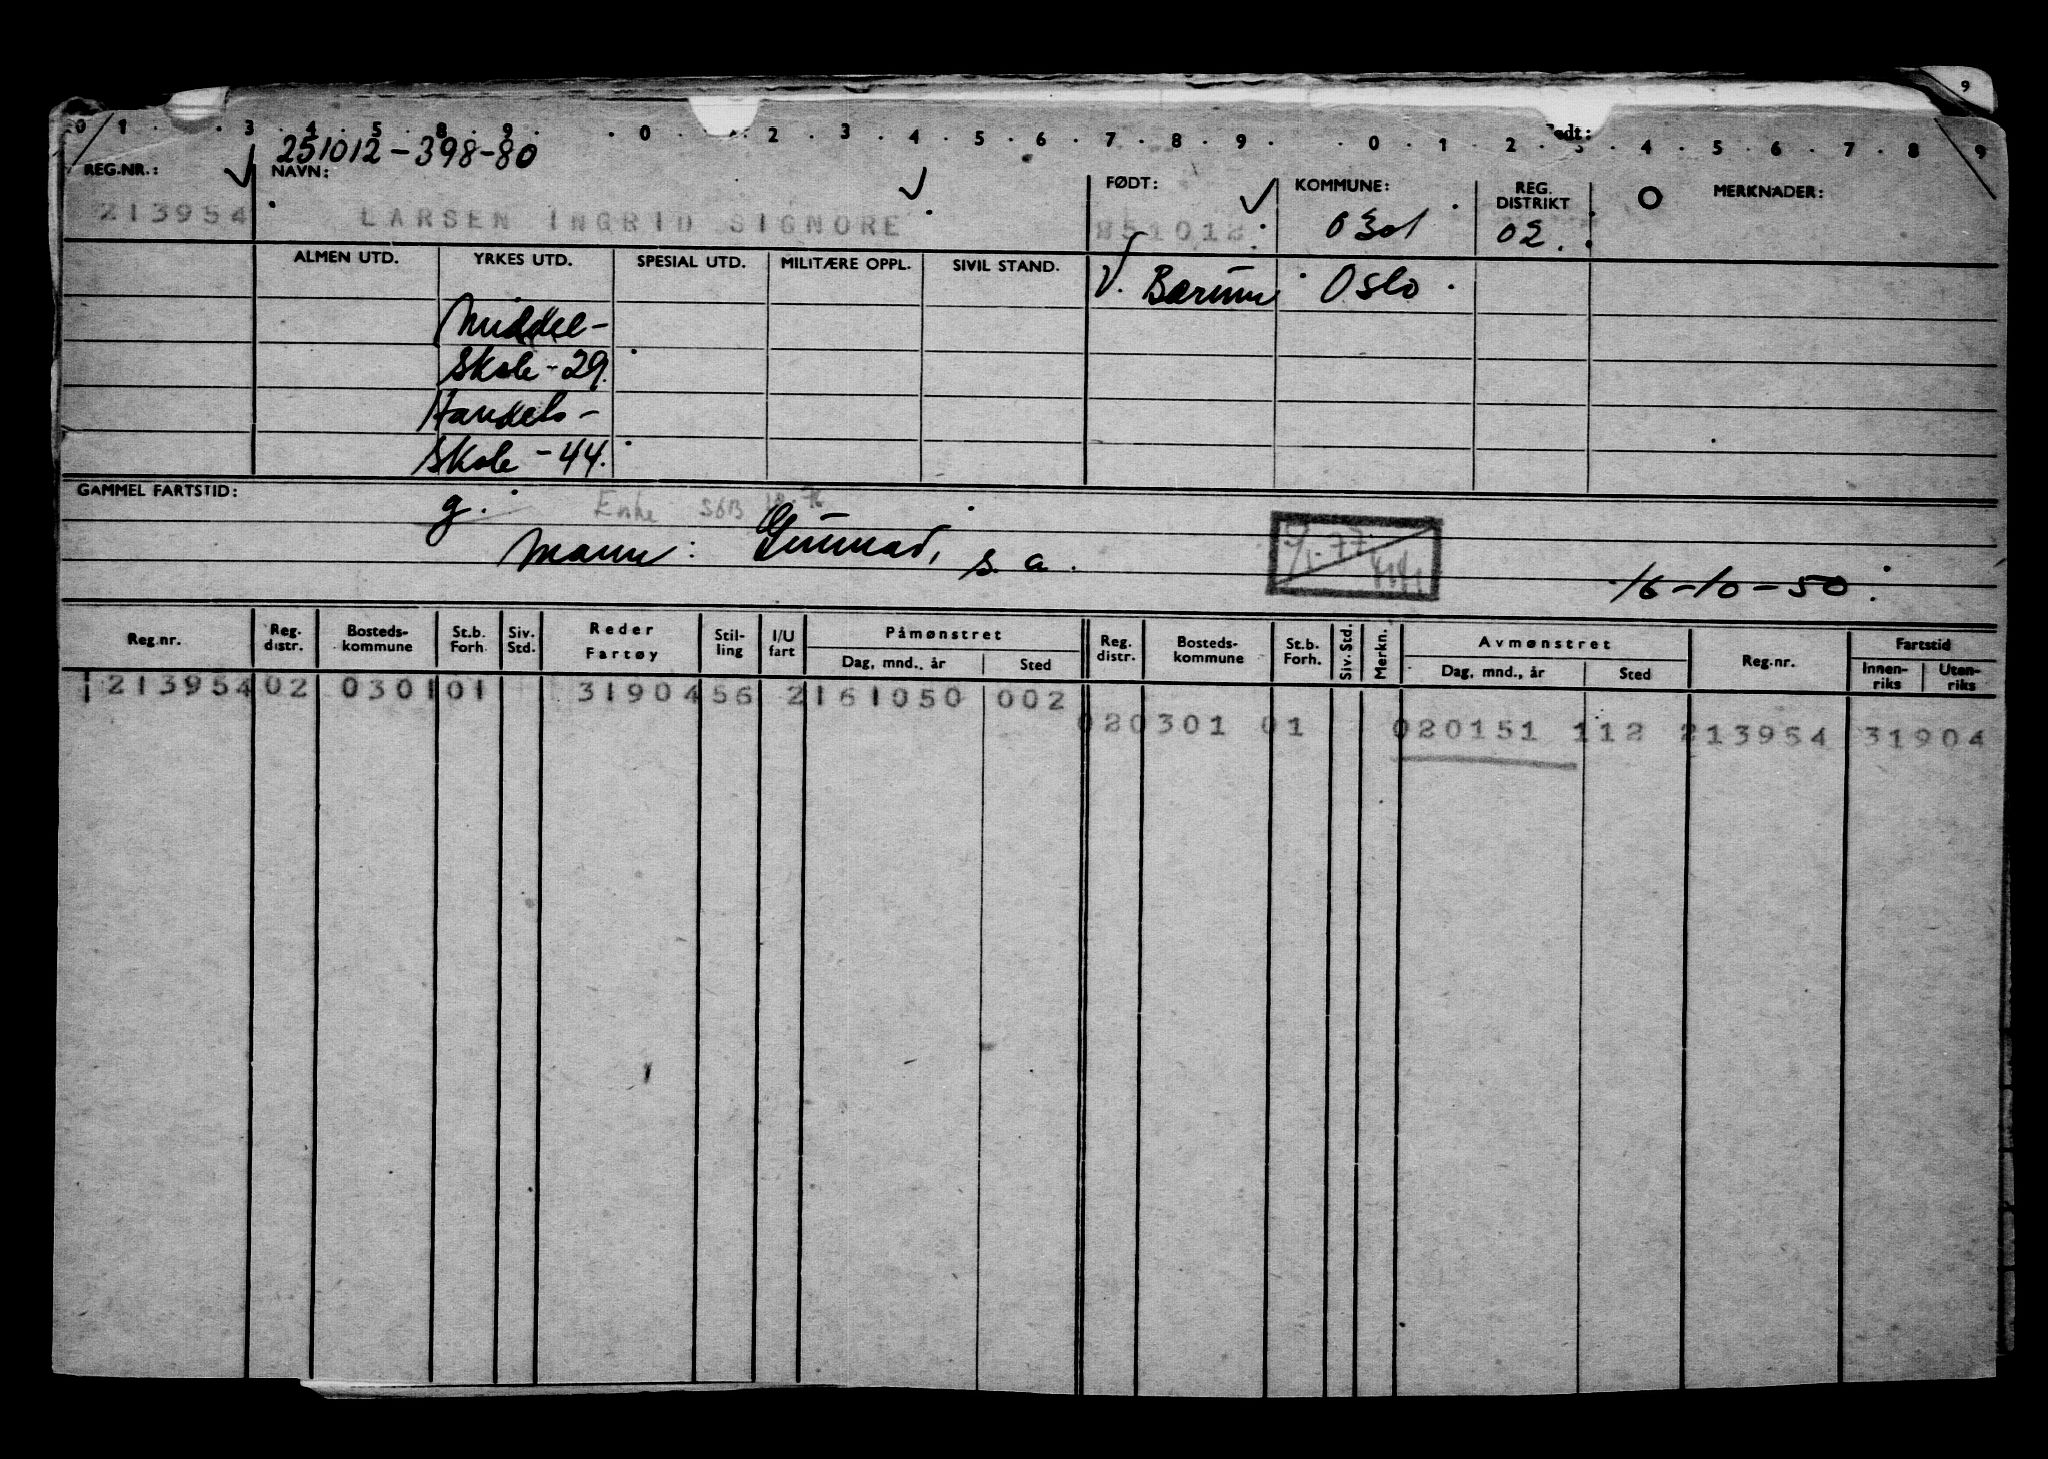 9
0 1 . . 3 . 4 . 5 . 8 . 9 . . 0 . 2 . 3 . 4 . 5 . 6 . 7 . 8 . 9 . . 0 . 1 . 2 . 3 . 4 . 5 . 6 . 7 . 8 . 9
251012-398-80
REG.NR.: NAVN: FØDT: KOMMUNE: REG. DISTRIKT O MERKNADER:
213954 LARSEN INGRID SIGNORE 251012 0301 02
ALMEN UTD. YRKES UTD. SPESIAL UTD. MILITÆRE OPPL. SIVIL STAND. V. Bærum Oslo
Middel-
skole -29.
Handels-
skole -44.
GAMMEL FARTSTID: g. Enke
Mann: Gunnar, s. a.
77
16-10-50.
Reg.nr. Reg. distr. Bosteds- kommune St.b. Forh. Siv. Std. Reder Fartøy Stil- ling I/U fart Påmønstret Dag, mnd., år Sted Reg. distr. Bosteds- kommune St.b. Forh. Siv. Std. Merkn. Avmønstret Dag, mnd., år Sted Reg.nr. Fartstid Innen- riks Uten- riks
213954 02 0301 01 31904 56 2 161050 002
02 0301 01 020151 112 213954 31904